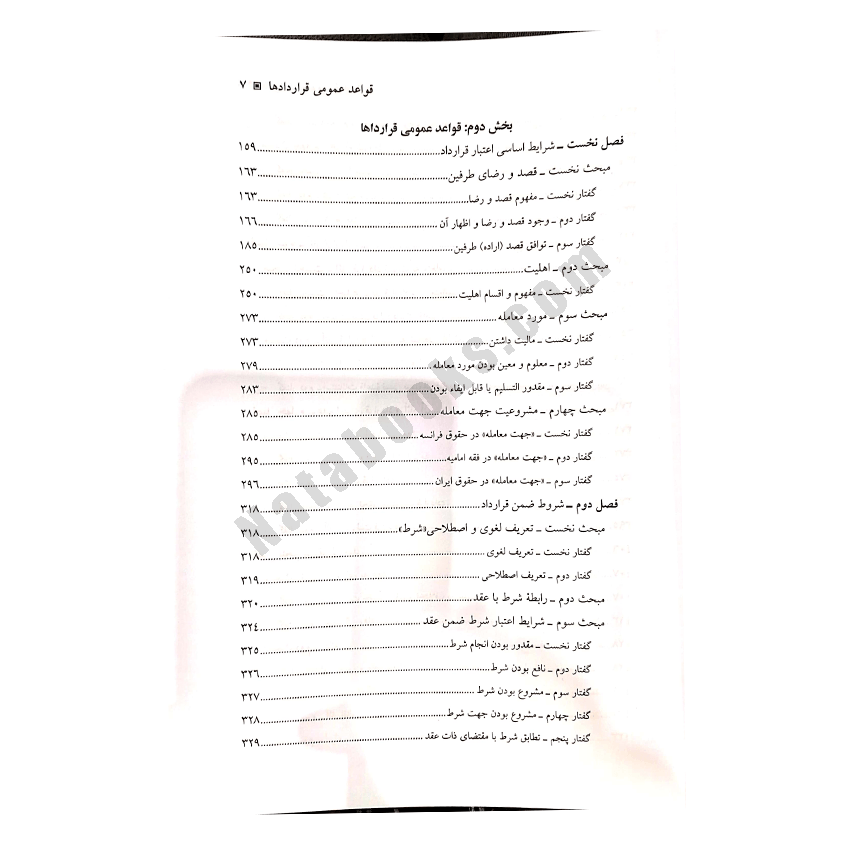 قواعد عمومی قراردادها ▣ ۷
بخش دوم: قواعد عمومی قرارداها
فصل نخست ـ شرایط اساسی اعتبار قرارداد ۱۵۹
مبحث نخست ـ قصد و رضای طرفین ۱۶۳
گفتار نخست ـ مفهوم قصد و رضا ۱۶۳
گفتار دوم ـ وجود قصد و رضا و اظهار آن ۱۶۶
گفتار سوم ـ توافق قصد (اراده) طرفین ۱۸۵
مبحث دوم ـ اهلیت ۲۵۰
گفتار نخست ـ مفهوم و اقسام اهلیت ۲۵۰
مبحث سوم ـ مورد معامله ۲۷۳
گفتار نخست ـ مالیت داشتن ۲۷۳
گفتار دوم ـ معلوم و معین بودن مورد معامله ۲۷۹
گفتار سوم ـ مقدور التسلیم یا قابل ایفاء بودن ۲۸۳
مبحث چهارم ـ مشروعیت جهت معامله ۲۸۵
گفتار نخست ـ «جهت معامله» در حقوق فرانسه ۲۸۵
گفتار دوم ـ «جهت معامله» در فقه امامیه ۲۹۵
گفتار سوم ـ «جهت معامله» در حقوق ایران ۲۹۶
فصل دوم ـ شروط ضمن قرارداد ۳۱۸
مبحث نخست ـ تعریف لغوی و اصطلاحی«شرط» ۳۱۸
گفتار نخست ـ تعریف لغوی ۳۱۸
گفتار دوم ـ تعریف اصطلاحی ۳۱۹
مبحث دوم ـ رابطهٔ شرط با عقد ۳۲۰
مبحث سوم ـ شرایط اعتبار شرط ضمن عقد ۳۲۴
گفتار نخست ـ مقدور بودن انجام شرط ۳۲۵
گفتار دوم ـ نافع بودن شرط ۳۲۶
گفتار سوم ـ مشروع بودن شرط ۳۲۷
گفتار چهارم ـ مشروع بودن جهت شرط ۳۲۸
گفتار پنجم ـ تطابق شرط با مقتضای ذات عقد ۳۲۹
Natabooks.com